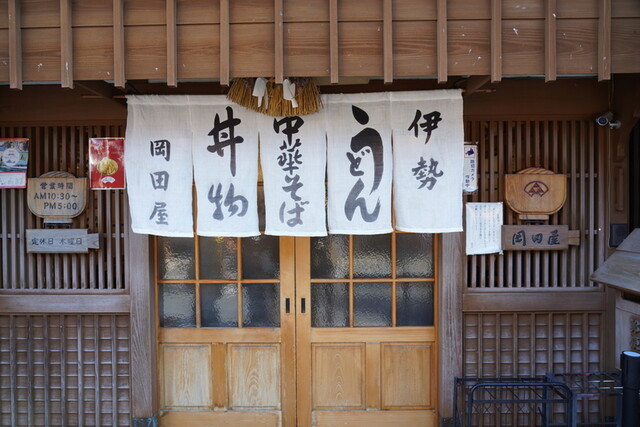 伊勢
うどん
中華そば
丼物
岡田屋
営業時間
AM10:30
PM5:00
定休日 木曜日
岡田屋